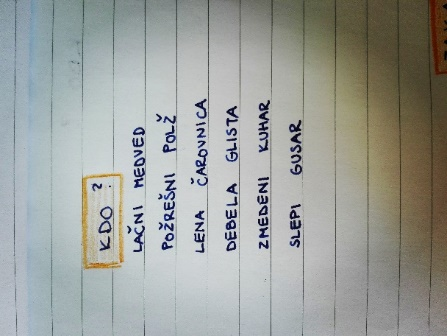 KDO?
LAČNI MEDVED
POŽREŠNI POLŽ
LENA ČAROVNICA
DEBELA GLISTA
ZMEDENI KUHAR
SLEPI GUSAR